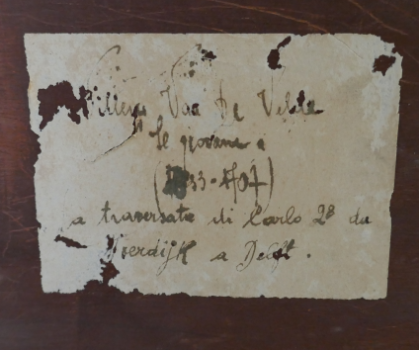 Willem Van De Velde
"le giovane"
(1633-1707)
a traversata di Carlo 2º da
Moerdijk a Delft.